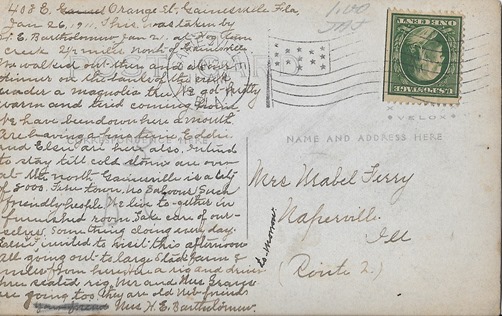 408 E. Orange St, Gainesville Fla,
Jan 26, 191 This was taken by
H. E. Bartholomew Jan 21, at Hogtown
creek 2 1/2 miles north of Gainesville
We walked out there and ate our
dinner on the bank of the creek
under a magnolia tree We got pretty
warm and tired coming home
We have been down here a month
are having a fine time Eddie
and Ella are here also, intend
to stay till cold storms are over
at the north Gainesville is a city
of 8000. Fine town, no Saloons Such
friendly people We live together in
furnished rooms Take care of our-
selves, Something doing every day.
invited to visit this afternoon
All going out to large farm 6
miles from here in a rig and driver
three seated rig, Mr and Mrs
are going too they are old Neb friends
Mrs H. E. Bartholomew.
to-morrow
POST CARD
CORRESPONDENCE HERE
NAME AND ADDRESS HERE
VELOX
U.S. POSTAGE
ONE CENT
1.00
Mrs Mabel Ferry
Naperville
Ill
(Route 2.)